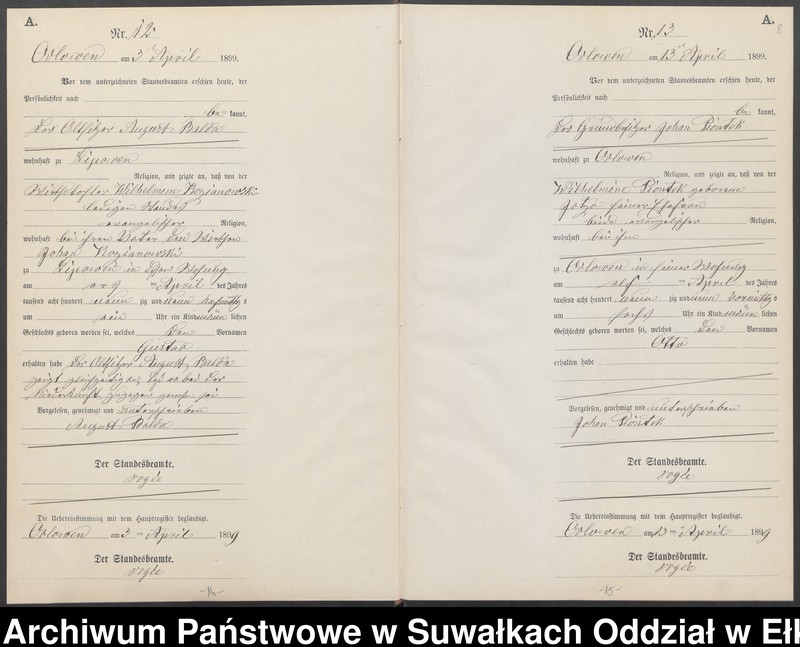 A.
Nr. 12
Orlowen am 3 ten April 1899.
Vor dem unterzeichneten Standesbeamten erschien heute, der
Persönlichkeit nach
be kannt,
der Altsitzer August Balda
wohnhaft zu Lipowen
Religion, und zeigte an, daß von der
Wilhelmine
ledigen Standes
evangelischer Religion,
wohnhaft bei ihrem Vater dem Wirthen
Johan
zu Lipowen in
am ten April des Jahres
tausend acht hundert neun zig und neun
um ein Uhr ein Kind männ lichen
Geschlechts geboren worden sei, welches den Vornamen
Gustav
erhalten habe Der Altsitzer August Balda
zeigt gleichzeitig an, daß er bei der
Niederkunft zugegen gewesen sei
Vorgelesen, genehmigt und unterschrieben
August Balda
Der Standesbeamte.
Die Uebereinstimmung mit dem Hauptregister beglaubigt.
Orlowen am 3 ten April 1899
Der Standesbeamte.
-14-
A.
8
Nr. 13
Orlowen am 13 ten April 1899.
Vor dem unterzeichneten Standesbeamten erschien heute, der
Persönlichkeit nach
be kannt,
der Grundbesitzer Johan Piontek
wohnhaft zu Orlowen
Religion, und zeigte an, daß von der
Wilhelmine Piontek geborene
seiner Ehefrau
beide evangelischer Religion,
wohnhaft bei ihm
zu Orlowen in seiner Wohnung
am elf ten April des Jahres
tausend acht hundert neun zig und neun Vormittags
um sechs Uhr ein Kind männ lichen
Geschlechts geboren worden sei, welches den Vornamen
Otto
erhalten habe
Vorgelesen, genehmigt und unterschrieben
Johan Piontek
Der Standesbeamte.
Die Uebereinstimmung mit dem Hauptregister beglaubigt.
Orlowen am 13 ten April 1899
Der Standesbeamte.
-15-
Archiwum Państwowe w Suwałkach Oddział w Ełk